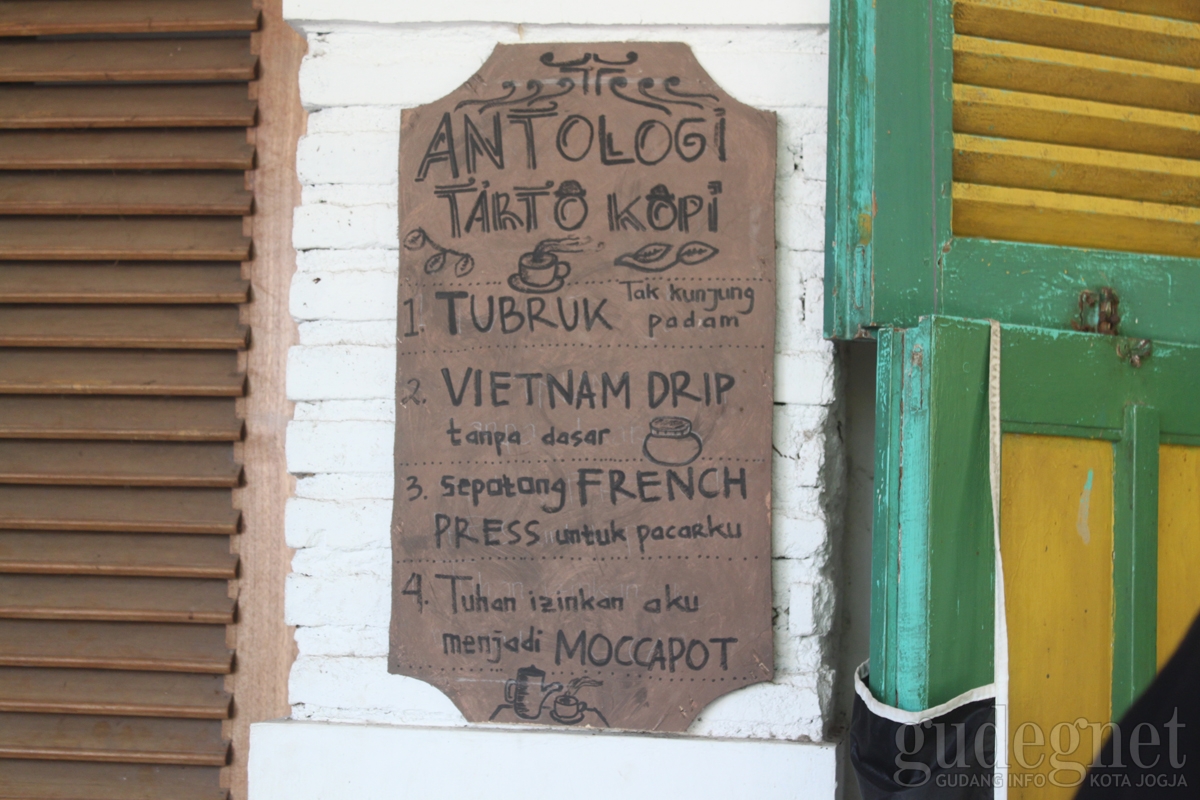 ANTOLLOGI
TARTO KOPI
1. TUBRUK Tak kunjung
padam
2. VIETNAM DRIP
tanpa dasar
3. Sepotong FRENCH
PRESS untuk pacarku
4. Tuhan izinkan aku
menjadi MOCCAPOT
gudegnet
GUDANG INFO KOTA JOGJA